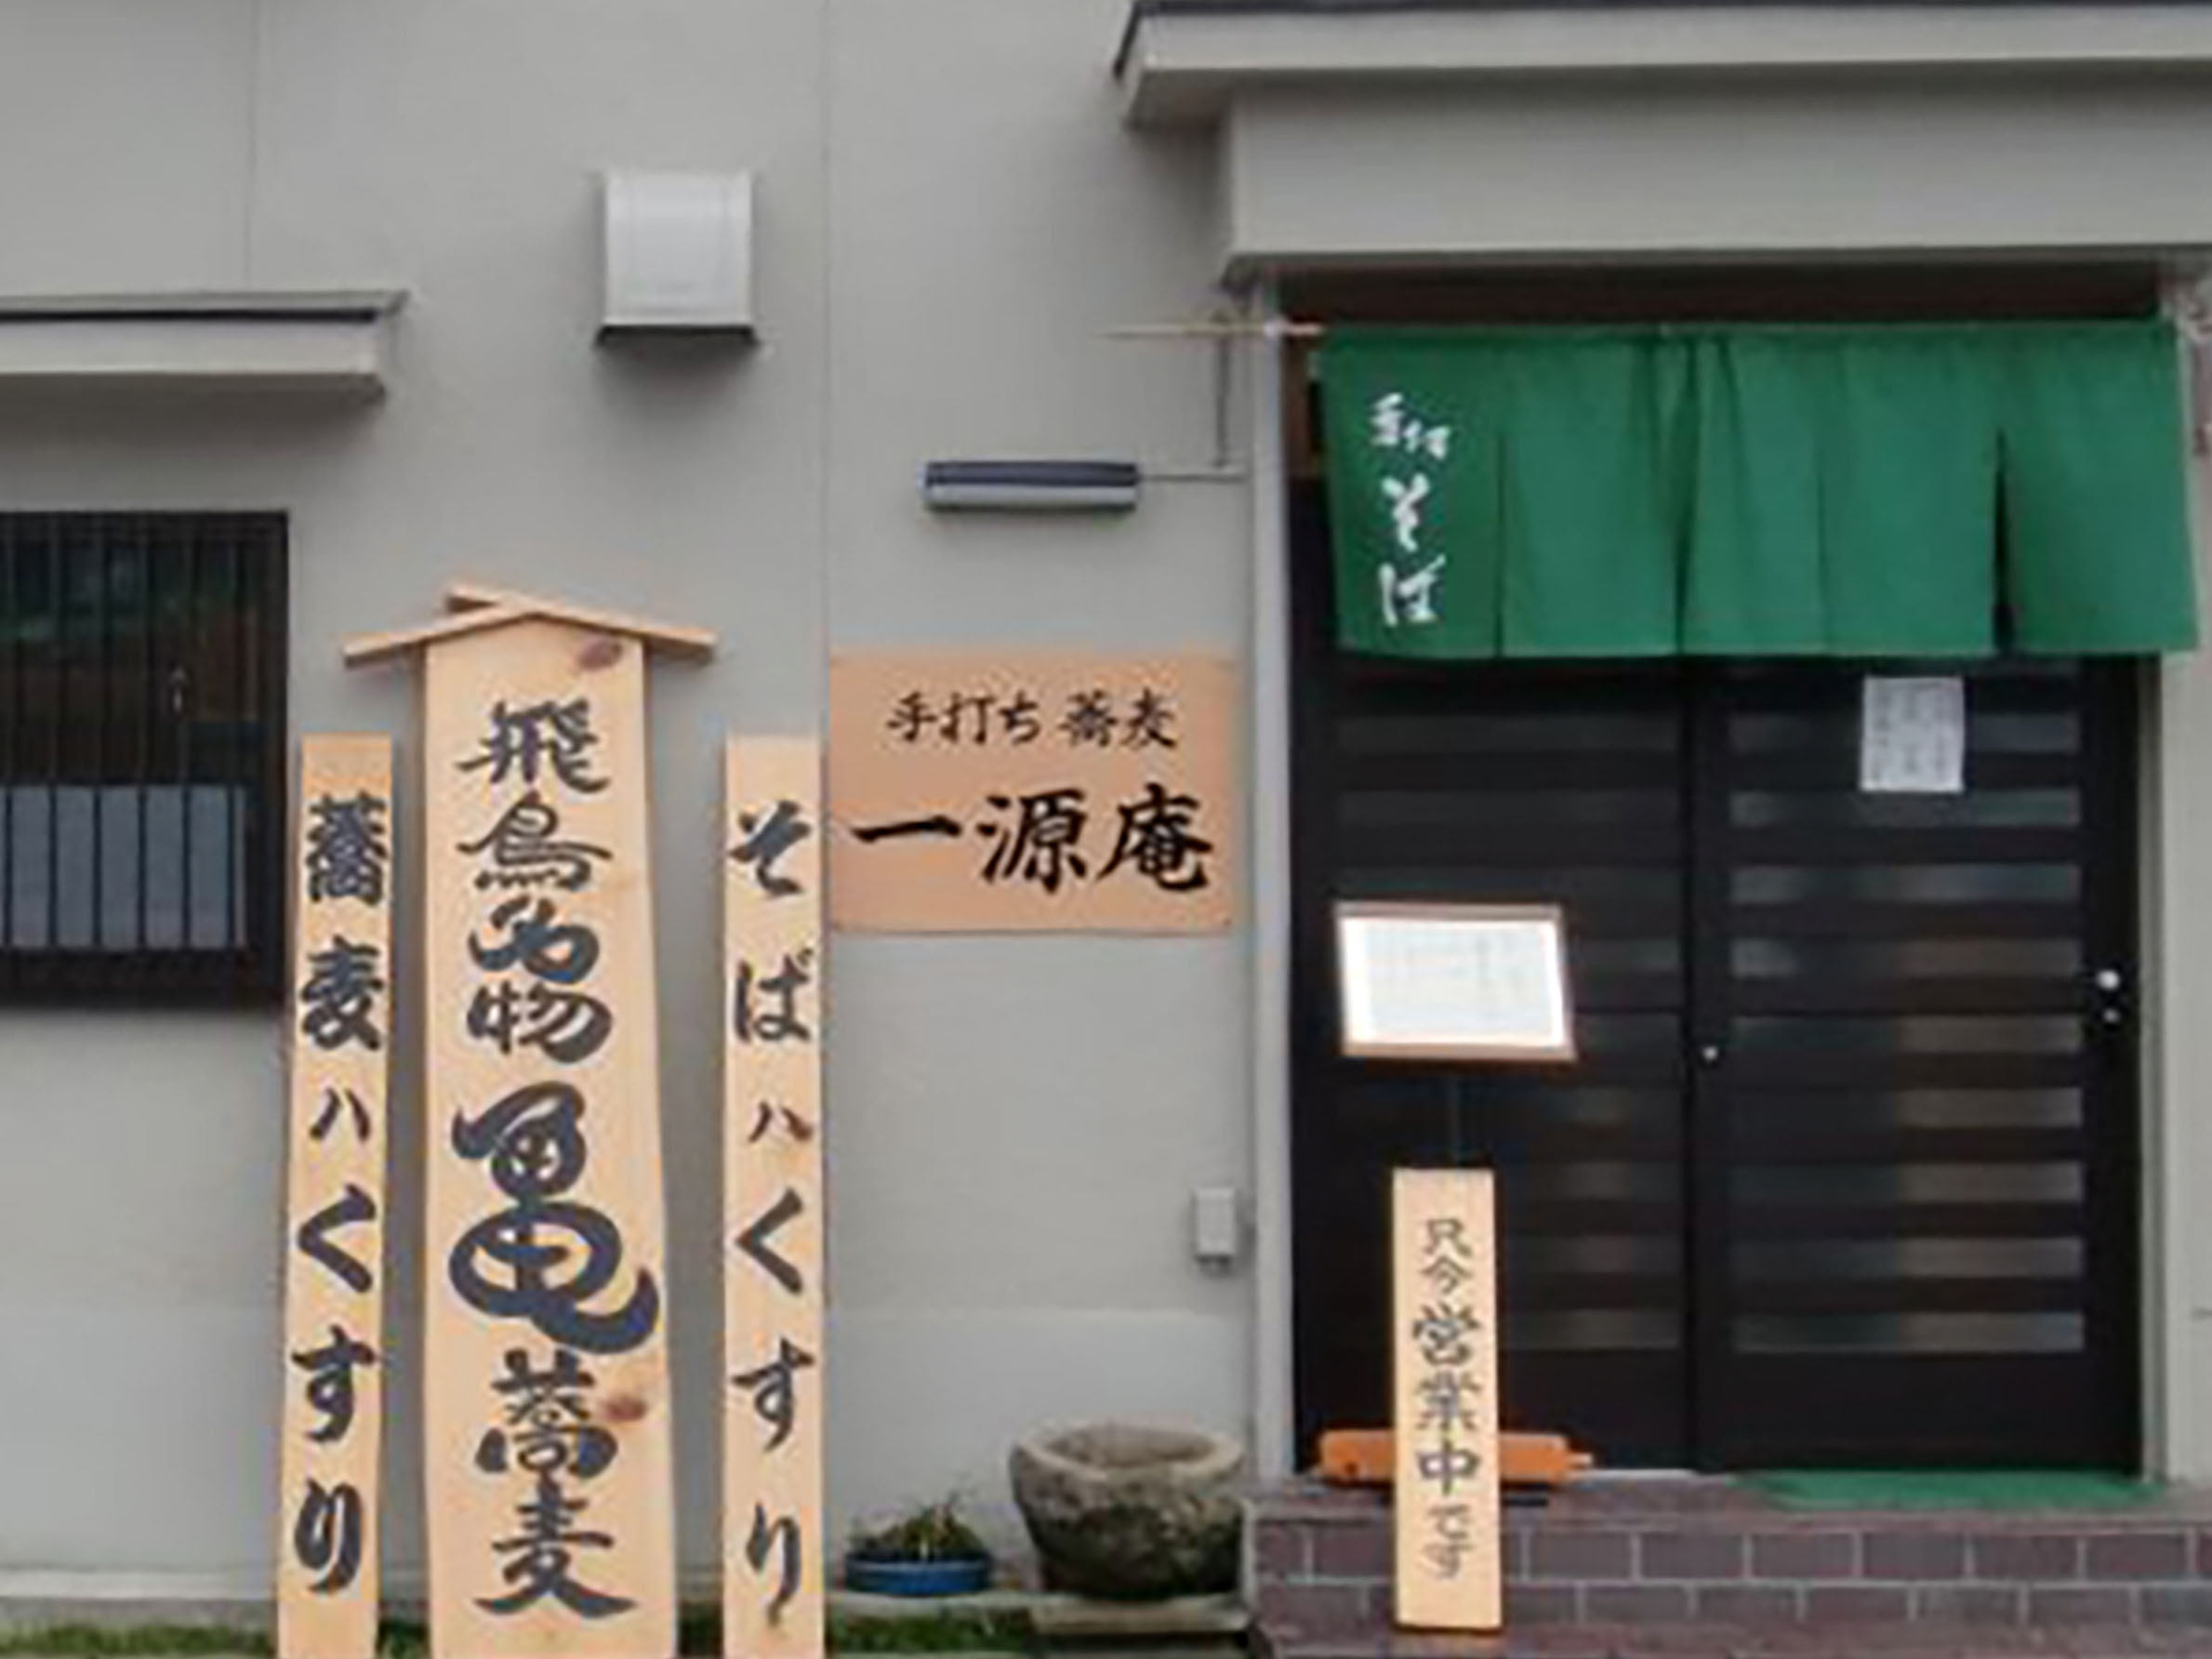 手打
そば
手打ち蕎麦
一源庵
そばハくすり
飛鳥名物亀蕎麦
蕎麦ハくすり
只今営業中です